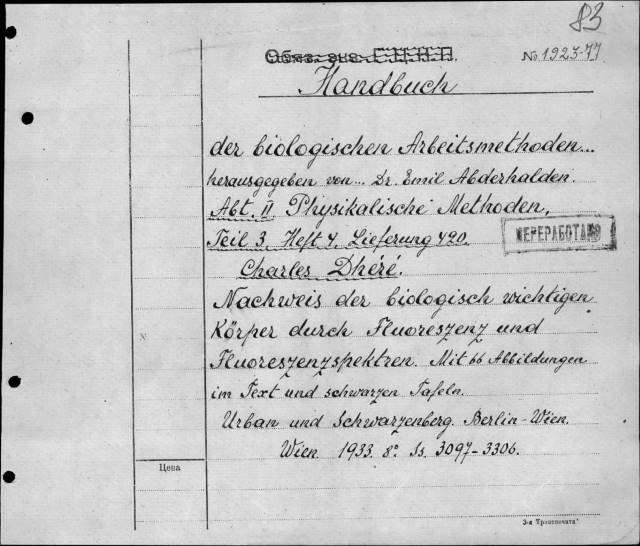 83
Обяз. экз. Г.Ц.К.П.
№ 1923-77
Handbuch
der biologischen Arbeitsmethoden...
herausgegeben von... Dr. Emil Abderhalden.
Abt. II Physikalische Methoden,
Teil 3, Heft 4, Lieferung 420.
ПЕРЕРАБОТАНО
Charles Dhéré.
Nachweis der biologisch wichtigen
Körper durch Fluoreszenz und
Fluoreszenzspektren. Mit 66 Abbildungen
im Text und schwarzen Tafeln.
Urban und Schwarzenberg. Berlin-Wien.
Wien 1933. 8° Ss. 3097-3306.
№
Цена
3-я "Транспечать"